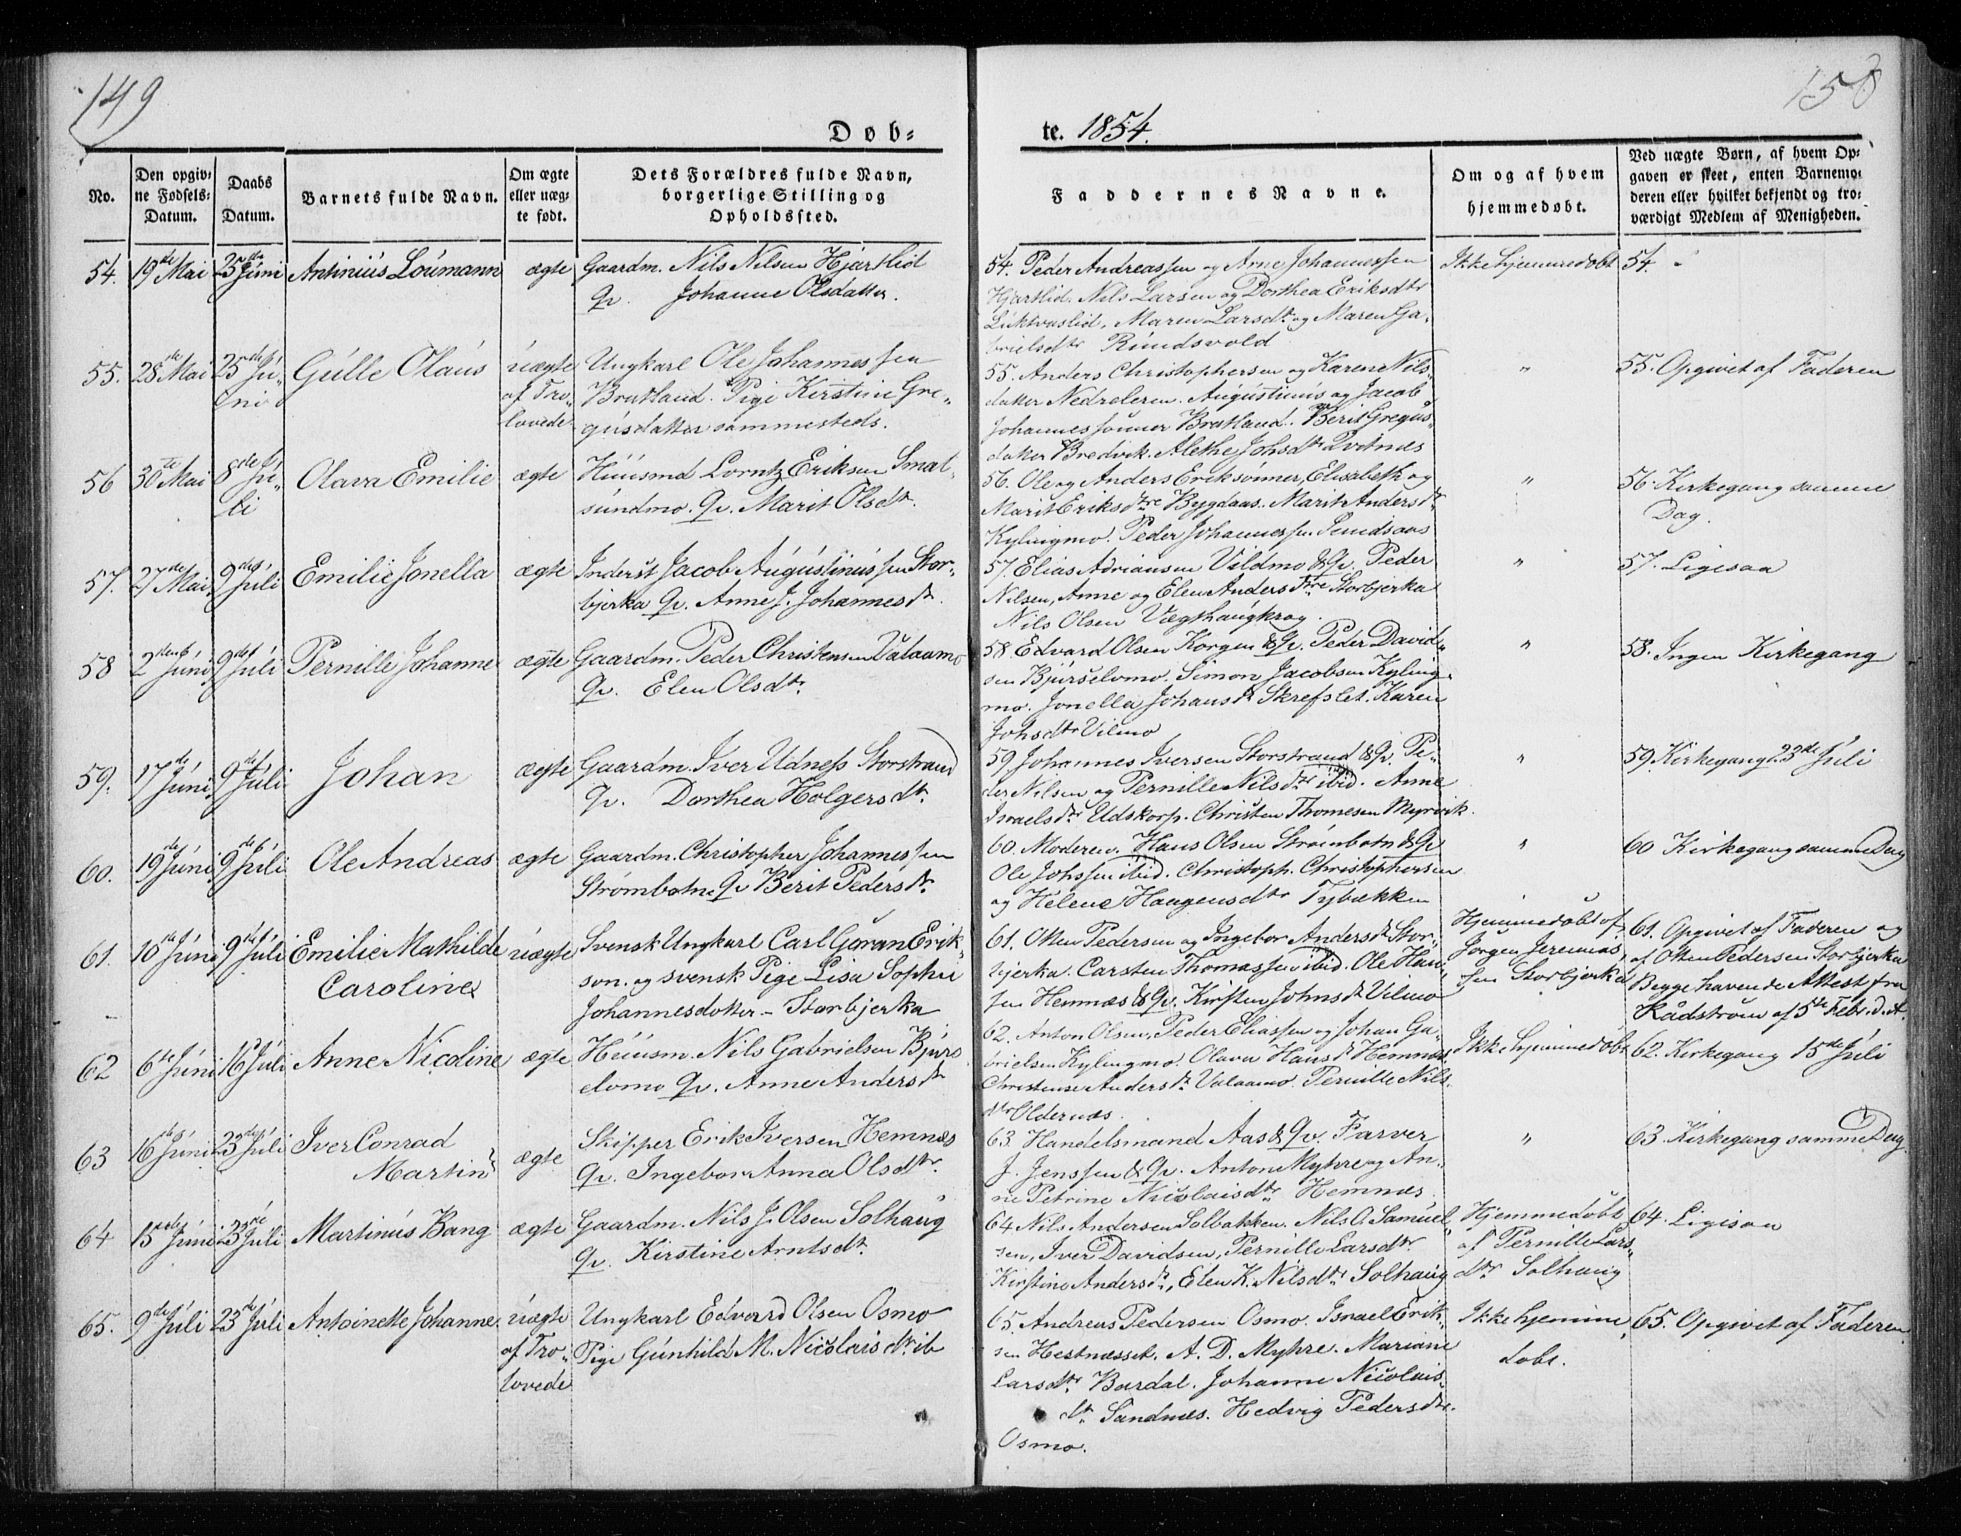 149
158
Døb-
te. 1854.
No.
Den opgiv-
ne Fødsels-
Datum.
Daabs
Datum.
Barnets fulde Navn.
Om ægte
eller uæg-
te født.
Dets Forældres fulde Navn,
borgerlige Stilling og
Opholdssted.
Faddernes Navne.
Om og af hvem
hjemmedøbt.
Ved uægte Børn, af hvem Op-
gaven er skeet, enten Barnemo-
deren eller hvilket bekjendt og tro-
værdigt Medlem af Menigheden.
54. 19de Mai 25de Júni Antiniús Loúmann ægte
Gaardm. Nils Nilsen Hjartlid
Qv. Johanne Olsdatter.
54. Peder Andreassen og Arne Johannessen
Hjartlid. Nils Larsen og Dorthea Eriksdtr
Luktvaslid. Maren Larsdtr og Maren Ga-
brielsdtr Rúndsvold
Ikke hjemmedøbt
54. "
55. 28de Mai 25de Jú-
ni
Gúlle Olaús
úægte
af Tro-
lovede
Ungkarl Ole Johannessen
Bratland. Pige Kirstine Gre-
gúsdatter sammesteds.
55. Anders Christophersen og Karene Nils-
datter Nedreleren. Aúgústinús og Jacob
Johannessønner Bratland. Berit Gregús-
datter Bredvik. Alethe Johsdtr Qvitnes
"
55. Opgivet af Faderen
56 30te Mai 8de Jú-
li
Olava Emilie ægte
Húúsmd Lorntz Eriksen Smal-
súndmo. Qv. Marit Olsdtr.
56. Ole og Anders Erikssønner, Elisabeth og
Marit Eriksdtre Bygdaas. Marit Andersdtr
Kylingmo. Peder Johannessen
"
56. Kirkegang samme
Dag.
57. 27de Mai 9de Júli Emilie Jonella ægte
Inderst Jacob Aúgústinússen Stor-
bjerka Qv. Anne J. Johannesdtr.
57. Elias Adriansen Vildmo & Qv. Peder
Nilsen, Anne og Elen Andersdtre Storbjerka
Nils Olsen Vægthaugkrog.
"
57. Ligesaa
58 2den Júni 9de Júli Pernille Johanne ægte
Gaardm. Peder Christensen Valaamo
Qv. Elen Olsdtr.
58. Edvard Olsen Korgen & Qv. Peder David-
sen Bjúrselvmo. Simon Jacobsen Kyling-
mo. Jonella Johansdtr Skrefslet. Karen
Johsdtr Vilmo
"
58. Ingen Kirkegang
59. 17de Júni 9de Júli Johan ægte
Gaardm. Iver Udness Storstrand
Qv. Dorthea Holgersdtr.
59 Johannes Iversen Storstrand & Qv. Pe-
der Nilsen og Pernille Nilsdtr ibid. Anne
Israelsdtr Udskorp. Christen Thomesen Myrvik.
"
59. Kirkegang 23de Júli
60. 19de Júni 9de Júli Ole Andreas ægte
Gaardm. Christopher Johannessen
Strømbotn Qv Berit Pedersdtr.
60. Moderen. Hans Olsen Strømbotn & Qv
Ole Johssen ibid. Christoph. Christophersen
og Helene Haagensdtr Tybækken
"
60 Kirkegang samme Dag
61. 10de Júni 9de Júli Emilie Mathilde
Caroline
úægte
Svensk Ungkarl Carl Gúran Erik-
son. og svensk Pige Lisa Sophie
Johannesdotter - Storbjerka
61. Otten Pedersen og Ingebor Andersdtr Stor-
bjerka. Carsten Thomassen ibid. Ole Han-
sen Hemnæs & Qv. Kirsten Johnsdtr Velmo
Hjemmedøbt af
Jørgen Jeremias-
sen Storbjerka
61. Opgivet af Faderen og
af Otten Pedersen Storbjerka
Begge havende Attest fra
Rådstrøm af 5te Febr. d. A.
62 6te Júni 16 Júli Anne Nicoline ægte
Húúsm. Nils Gabrielsen Bjúrs
elvmo Qv. Anne Andersdtr
62. Anton Olsen, Peder Eliassen og Johan Ga-
brielsen Kylingmo. Olava Hansdtr Hemnæs.
Christense Andersdtr Valaamo. Pernille Nils-
dtr Oldernæs.
Ikke hjemmedøbt
62. Kirkegang 15de Júli
63 16de Júni 23de Júli Iver Conrad
Martin
ægte
Skipper Erik Iversen Hemnæs
Qv. Ingebor Anna Olsdtr.
63 Handelsmand Aas & Qv. Farver
J. Jenssen & Qv. Anton Myhre og An-
ne Petrine Nicolaisdtr Hemnæs.
"
63. Kirkegang samme Dag.
64 15de Júni 23de Júli Martinús Bang ægte
Gaardm. Nils J. Olsen Solhaúg
Qv. Kirstine Arntsdtr.
64 Nils Andersen Solbakken. Nils O. Samúel-
sen, Iver Davidsen, Pernille Larsdtr.
Kirstine Andersdtr, Elen K. Nilsdtr Solhaúg
Hjemmedøbt
af Pernille Lars-
dtr Solhaug
64. Ligesaa
65. 9de Júli 23de Júli Antoinette Johanne.
úægte
af Tro-
lovede
Ungkarl Edvard Olsen Osmo
Pige Gúnhild M. Nicolaisdtr ib
65. Andreas Pedersen Osmo. Israel Erik-
sen Hestnæsset. A. D. Myhre. Mariane
Larsdtr Bardal. Johanne Nicolais-
dtr Sandnæs. Hedvig Pedersdtr.
Osmo.
Ikke hjemme-
døbt.
65. Opgivet af Faderen.